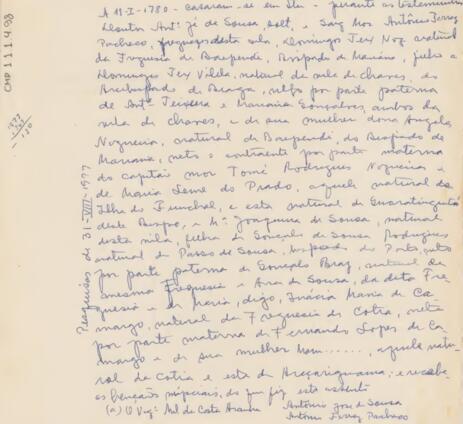 A 11-I-1780 - casaram-se em Itu - perante as testemunhas
Antº jé de Sousa, solt, e Sarg Mor Antônio Ferraz
Pacheco, fregueses desta vila, Domingos Teix Nog. natural
da Freguesia de Baependi, Bispado de Mariana, filho de
Domingos Teix Vilela, natural da vila de Chaves, do
Arcebispado de Braga, neto por parte paterna
de Antº Teixeira e Mariana Gonçalves, ambos da
vila de Chaves, e de sua mulher dona Angela
Nogueira, natural de Baependi, do Bispado de
Mariana, neto o contraente por parte materna
do capitão mor Tomé Rodrigues Nogueira e
de Maria Leme do Prado, aquele natural da
Ilha do Funchal, e esta natural de Guaratinguetá
deste Bispo, e Mª Joaquina de Sousa, natural
desta vila, filha de Gonçalo de Sousa Rodrigues
natural de Passo de Sousa, bispado do Porto, neta
por parte paterna de Gonçalo Braz, natural da
mesma Freguesia e Ana de Sousa, da dita Fre
guesia e de Maria, digo, Inácia Maria de Ca-
margo, natural da Freguesia de Cotia, neta
por parte materna de Fernando Lopes de Ca
margo e de sua mulher ......, aquele natu-
ral da Cotia e esta de Araçariguama; e receberam
as bençãos nupciais, do que fiz este assento
(a) O Vigº Mel da Costa Aranha Antônio José de Sousa
Antônio Ferraz Pacheco
CMP 1.1.1.4.98
Pesquisas de 31-VIII-1977